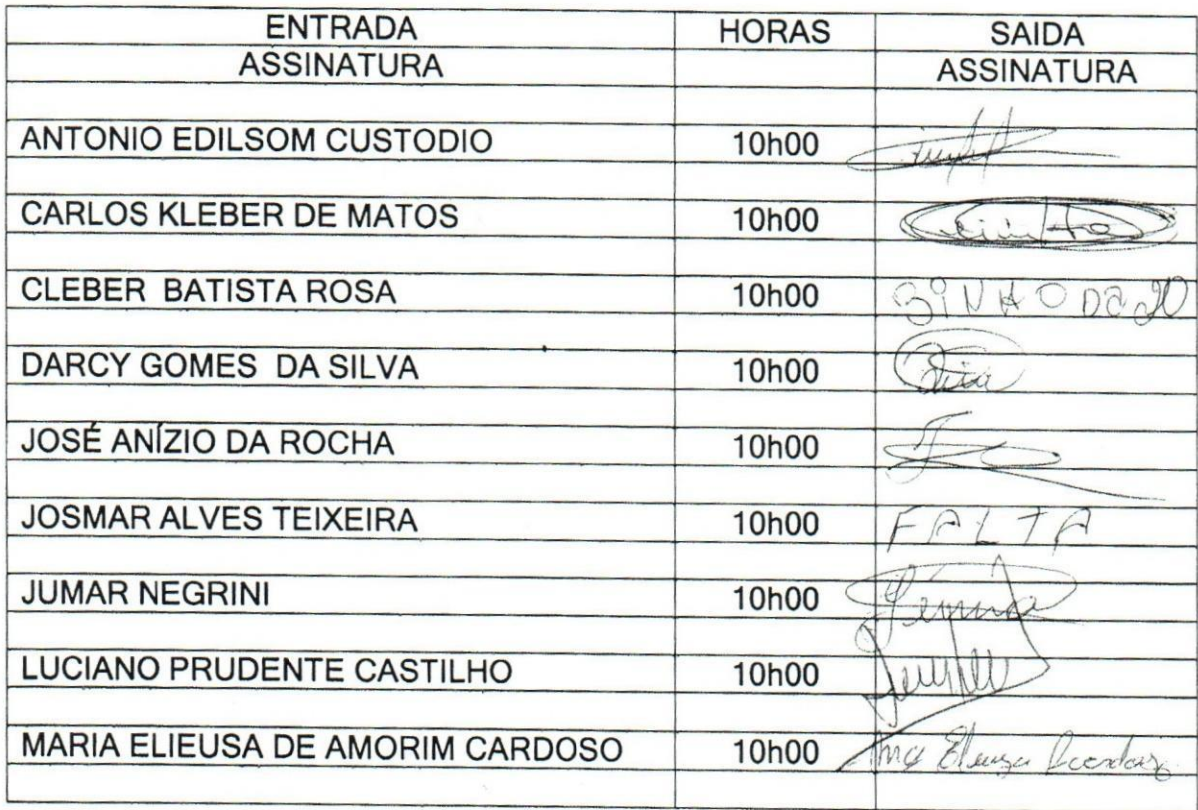 ENTRADA HORAS SAIDA
ASSINATURA ASSINATURA
ANTONIO EDILSOM CUSTODIO 10h00
CARLOS KLEBER DE MATOS 10h00
CLEBER BATISTA ROSA 10h00
DARCY GOMES DA SILVA 10h00
JOSÉ ANÍZIO DA ROCHA 10h00
JOSMAR ALVES TEIXEIRA 10h00 FALTA
JUMAR NEGRINI 10h00
LUCIANO PRUDENTE CASTILHO 10h00
MARIA ELIEUSA DE AMORIM CARDOSO 10h00